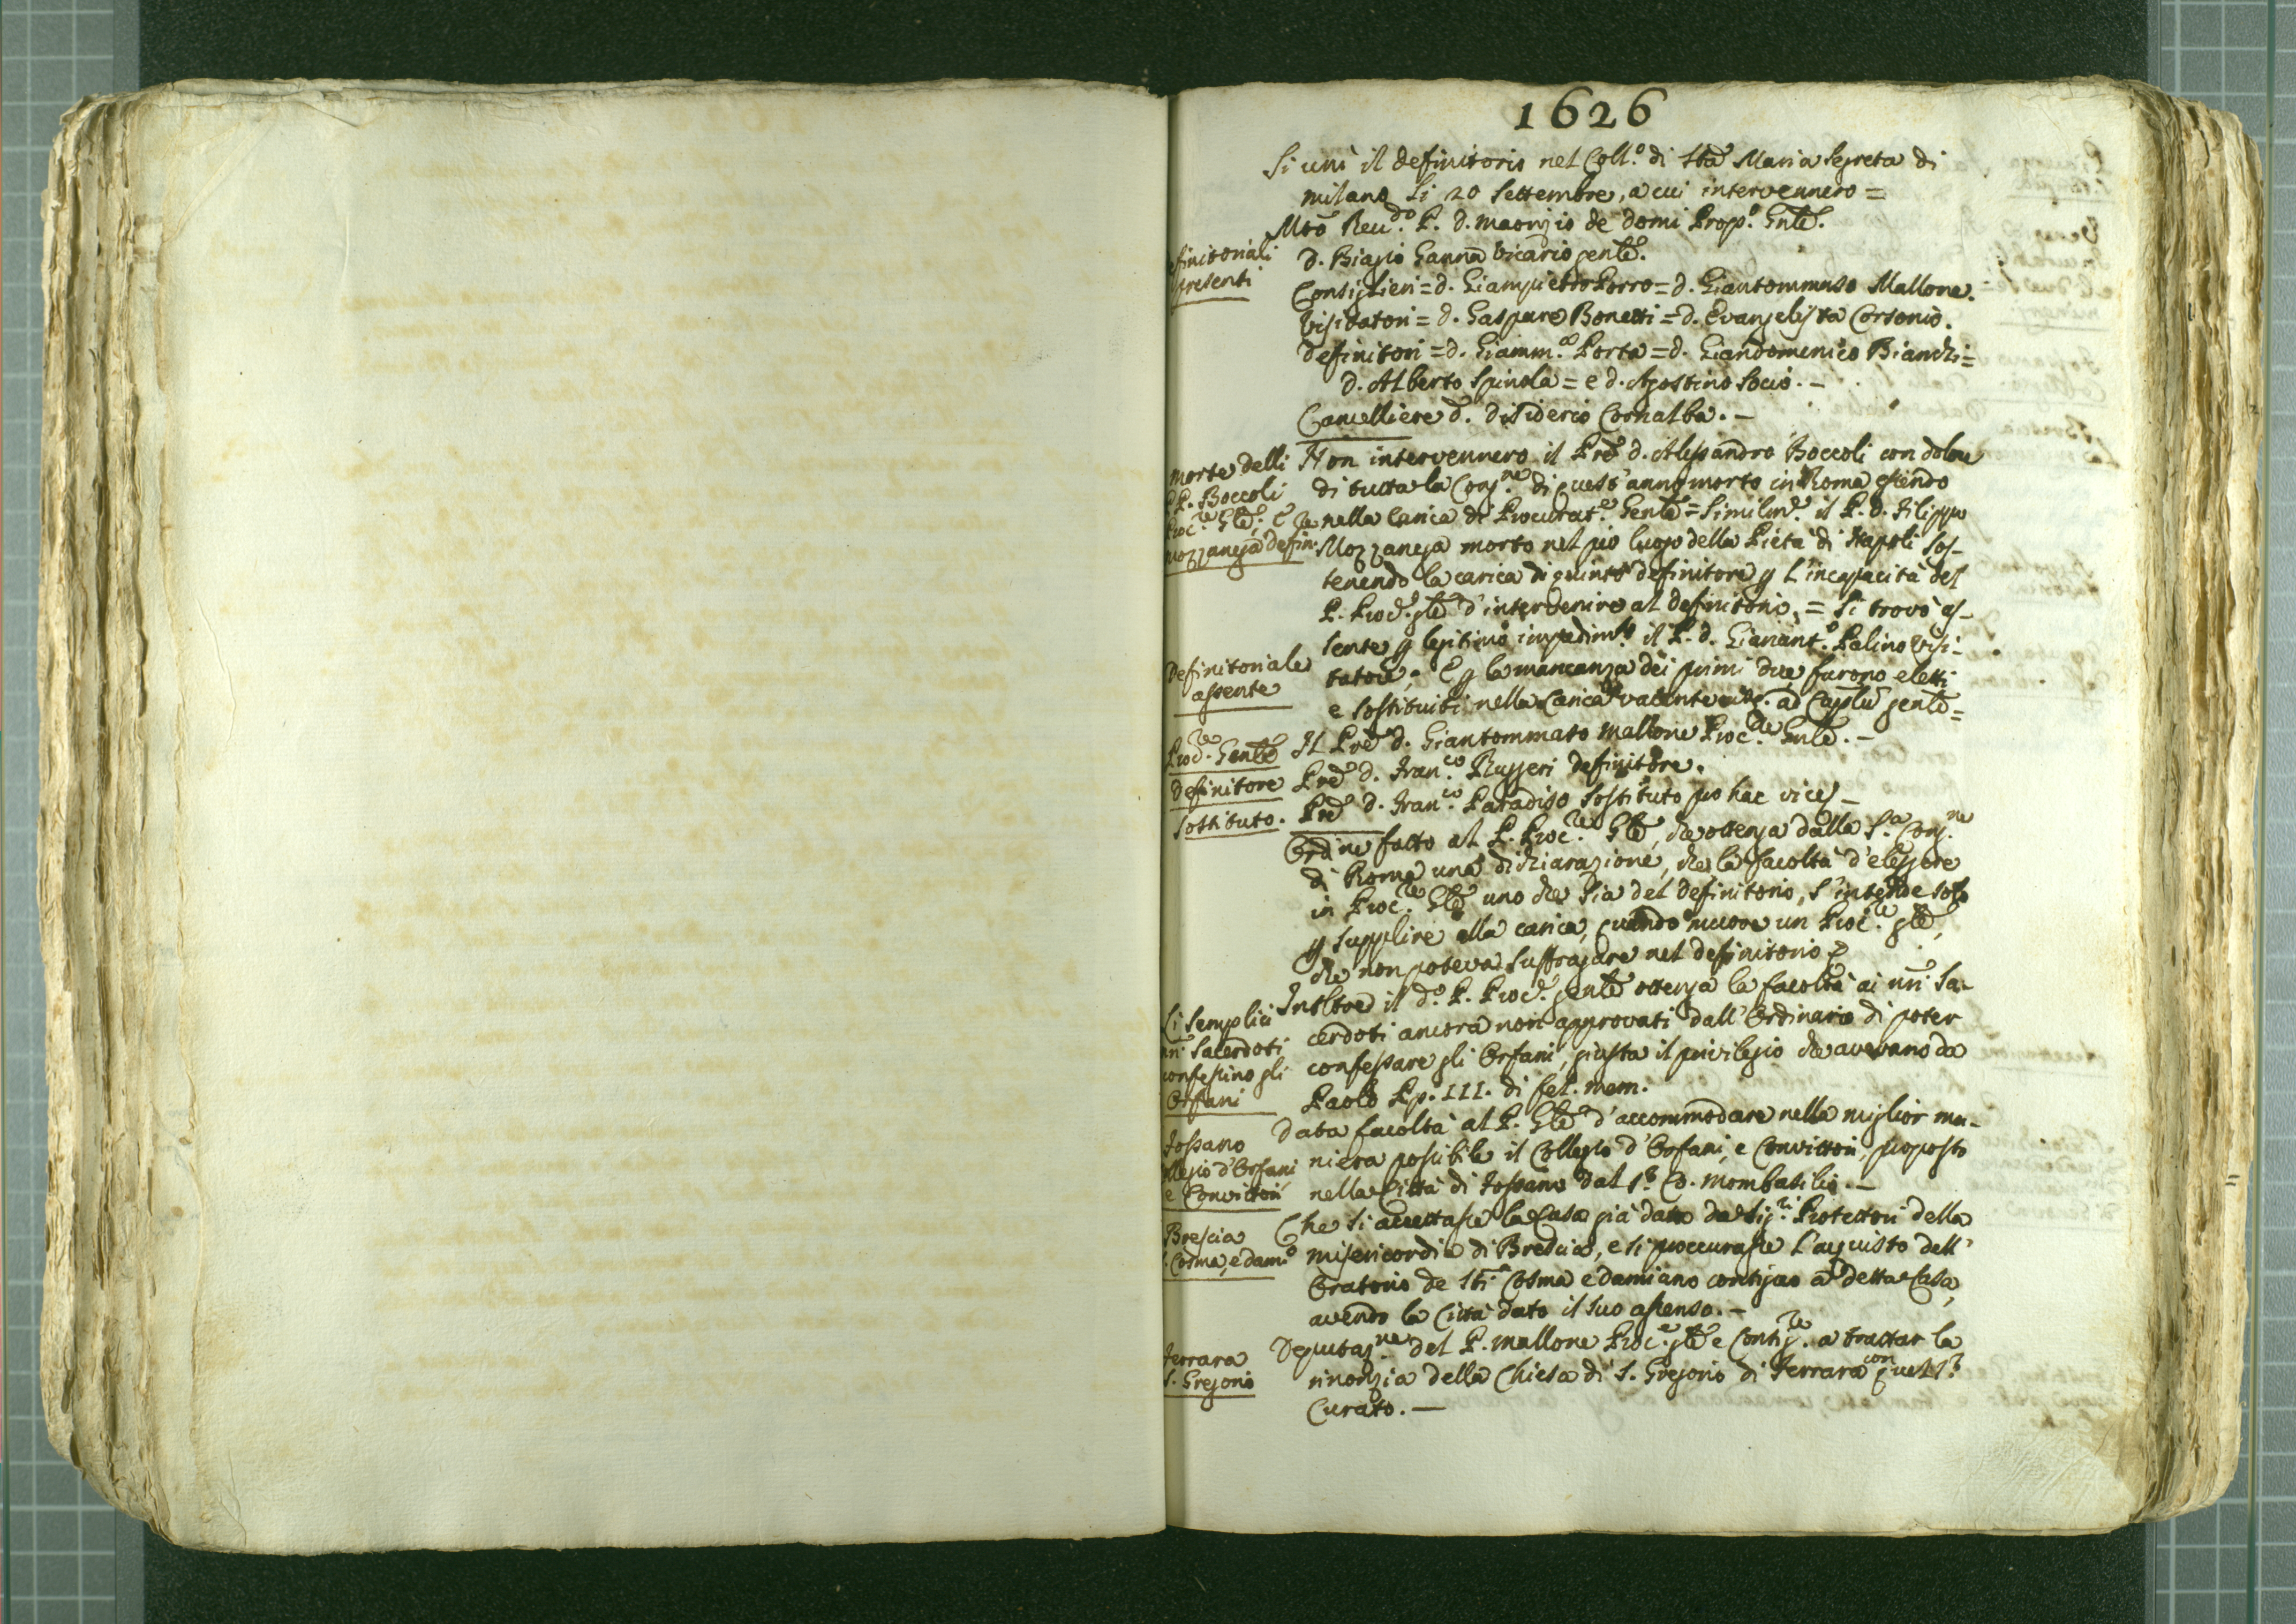 1626
Si unì il definitorio nel Coll.o di Sta Maria Segreta di
milano li 20 Settembre, a cui intervennero =
Mto Reu.do P. d. maorizio de domi Prop.o Gnle.
definitoriali
presenti
d. Biagio Ganna Vicario genle.
Consiglieri = d. Giampietro Porro = d. Giantommaso Mallone.
Visitatori = d. Gaspare Bonetti = d. Evangelista Corsonio.
definitori = d. Giamm.a Porta = d. Giandomenico Bianchi =
d. Alberto Spinola = e d. Agostino Socio. –
Cancelliere d. disiderio Cornalba. –
morte delli
PP. Boccoli
Proc.re Gle, e
Mozzanega defin.re
Non intervennero il Pre d. Alessandro Boccoli con dolore
di tutta la Cong.ne di quest'anno morto in Roma essendo
nella carica di Procurat.e Genle = Similm.e il P. d. Filippo
Mozzanega morto nel pio luogo della Pietà di Napoli sos-
tenendo la carica di quinto definitore p l'incapacità del
P. Proc.re gle d'intervenire al definitorio. = Si trovò as-
sente p legitimo impedim.to il P. d. Gianant.o Palino Visi-
Definitoriale
assente
tatore, E p la mancanza dei primi due furono eletti
e sostituiti nella Carica vacente ad Caplu genle =
Proc.re Genle
Il Pre d. Giantommaso Mallone Proc.re Gnle. –
definitore
Pre d. Fran.co Ruggeri definitore.
Sostituto.
Pre d. Fran.co Paradiso sostituto pro hac vice –
Ordine fatto al P. Proc.re Gle, che ottenga dalla S.a Cong.ne
di Roma una dichiarazione, che la facoltà d'eleggere
in Proc.re Gle uno che sia del definitorio, s'intende solo
p supplire alla carica, quando muore un Proc.re gle,
che non poteva suffragare nel definitorio
Li semplici
nri Sacerdoti
confessino gli
Orfani
Inoltre il d.o P. Proc.re genle ottenga la facoltà ai nri Sa-
cerdoti ancora non approvati dall'Ordinario di poter
confessare gli Orfani, giusta il privilegio che avevano da
Paolo Pp. III. di fel. mem.
Fossano
Collegio d'Orfani
e Convittori
Data facoltà al P. Gle d'accommodare nella miglior ma-
niera possibile il Collegio d'Orfani, e Convittori, proposto
nella Città di Fossano dal S.r Co. Mombasilio. –
Brescia
S. Cosma, e dam.o
Che si accettasse la Casa già data da Sig.ri Protettori della
misericordia di Brescia, e si proccurasse l'acquisto dell'
Oratorio de Sti Cosma e damiano contiguo a detta Casa,
avendo la Città dato il suo assenso. –
Ferrara
S. Gregorio
Deputaz.ne del P. Mallone Proc.e gle e Consig.re a trattar la
rinonzia della Chiesa di S. Gregorio di Ferrara con quel S.r
Curato. –